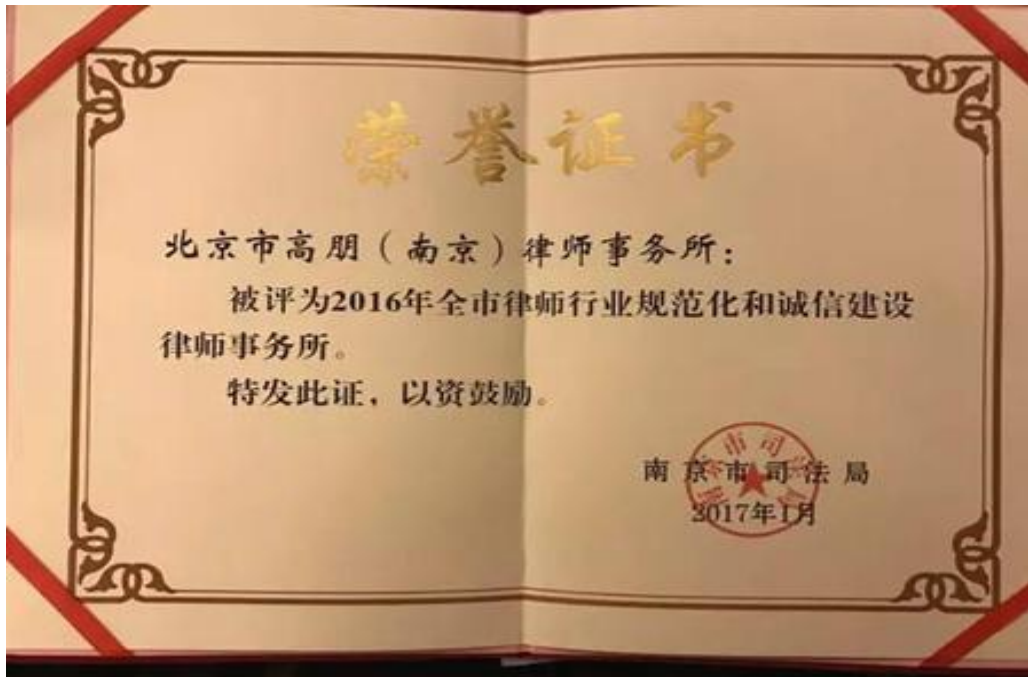 荣誉证书
北京市高朋（南京）律师事务所：
被评为2016年全市律师行业规范化和诚信建设
律师事务所。
特发此证，以资鼓励。
南京市司法局
2017年1月
南京市司法局